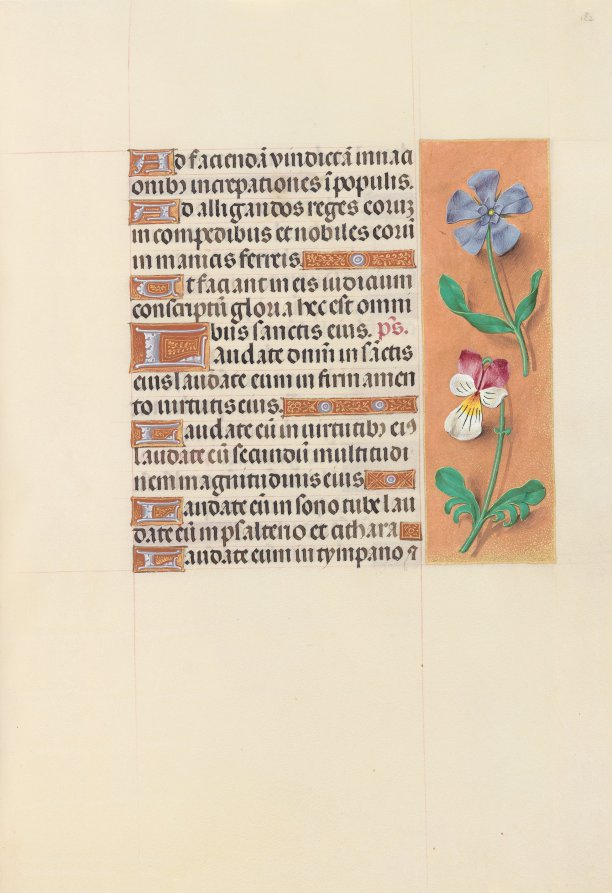 182
Ad faciendā vindictā in naci
onibꝫ increpationes ī populis.
Ad alligandos reges eoruꝫ
in compedibus et nobiles eorū
in manicis ferreis.
Et faciant in eis iudicium
conscriptū gloria hec est omni
bus sanctis eius. ps̄.
Laudate dnm̄ in sāctis
eius laudate eum in firmamen
to uirtutis eius.
Laudate eū in uirtutibꝫ eiꝰ
laudate eū secundū multitudi
nem magnitudinis eius
Laudate eū in sono tube lau
date eū in psalterio et cithara
Laudate eum in tympano ⁊